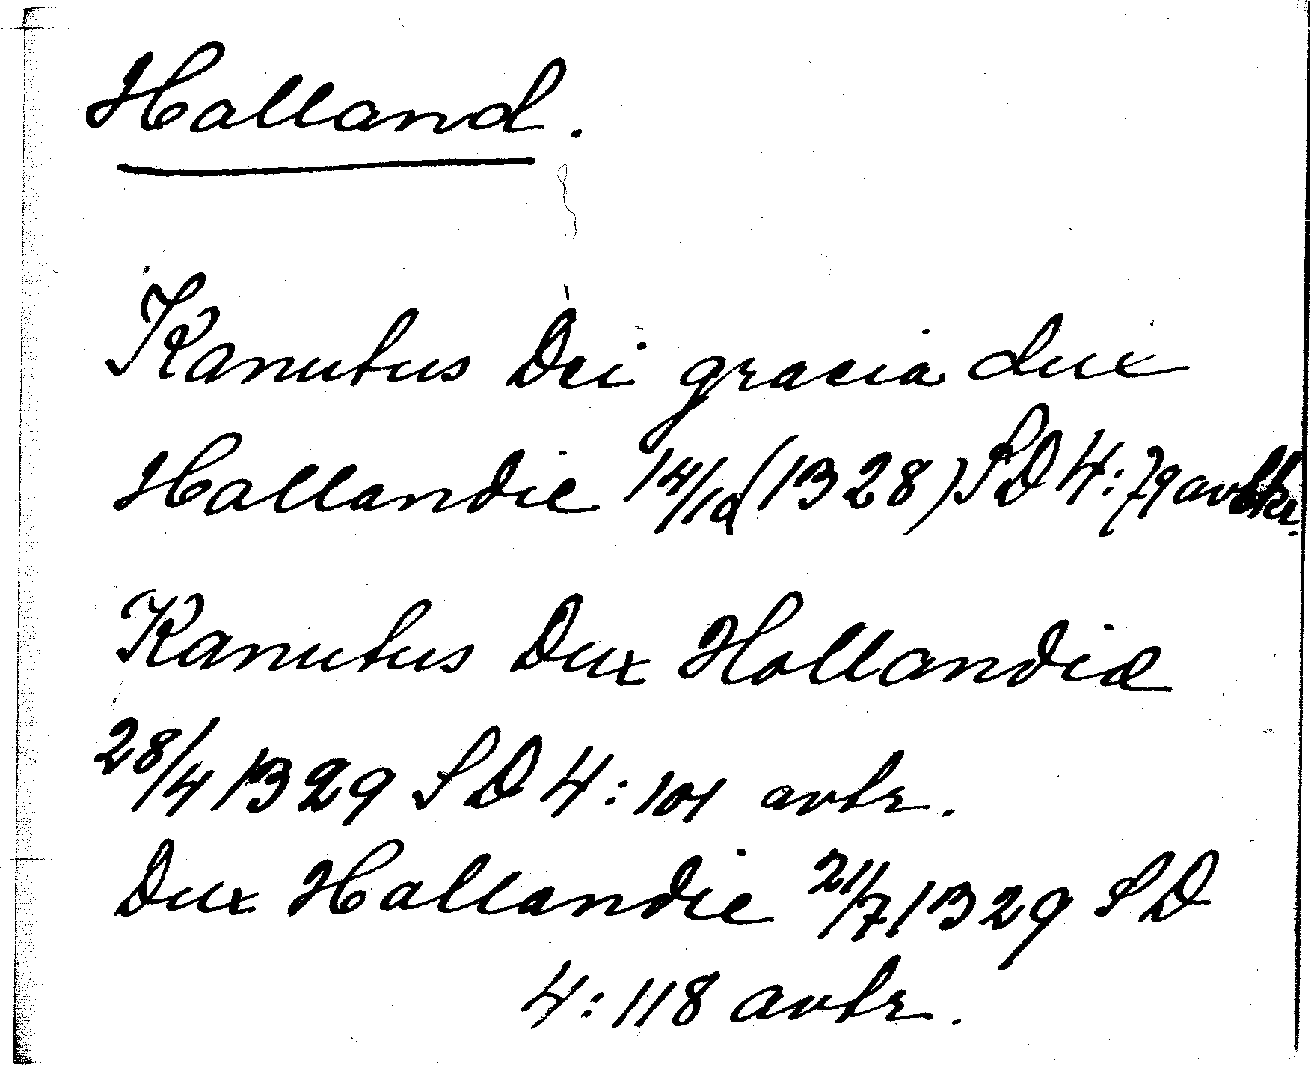 Halland.
Kanutus Dei gracia dux
Hallandie 14/10 (1328) SD 4:79 avskr.
Kanutus Dux Hollandiæ
28/4 1329 SD 4:101 avtr.
Dux Hallandie 21/7 1329 SD
4:118 avtr.